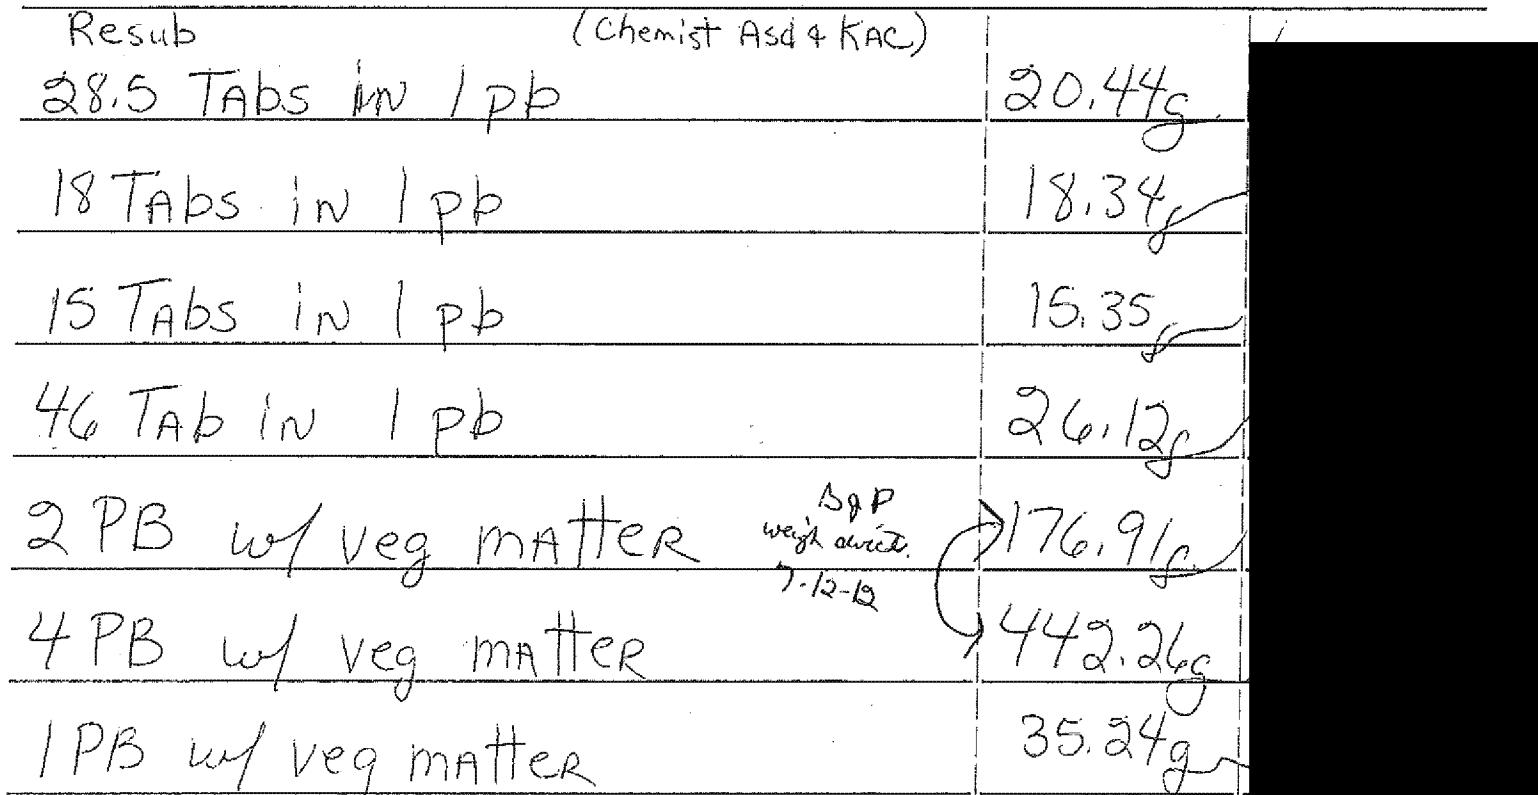 Resub (Chemist Asd & KAC)
28.5 TAbs in 1 pb 20.44g
18 TAbs in 1 pb 18.34g
15 TAbs in 1 pb 15.35g
46 TAb in 1 pb 26.12g
2 PB w/ veg mAtteR 176.91g
weigh
7-12-12
4 PB w/ veg mAtteR 442.26g
1 PB w/ veg mAtteR 35.24g